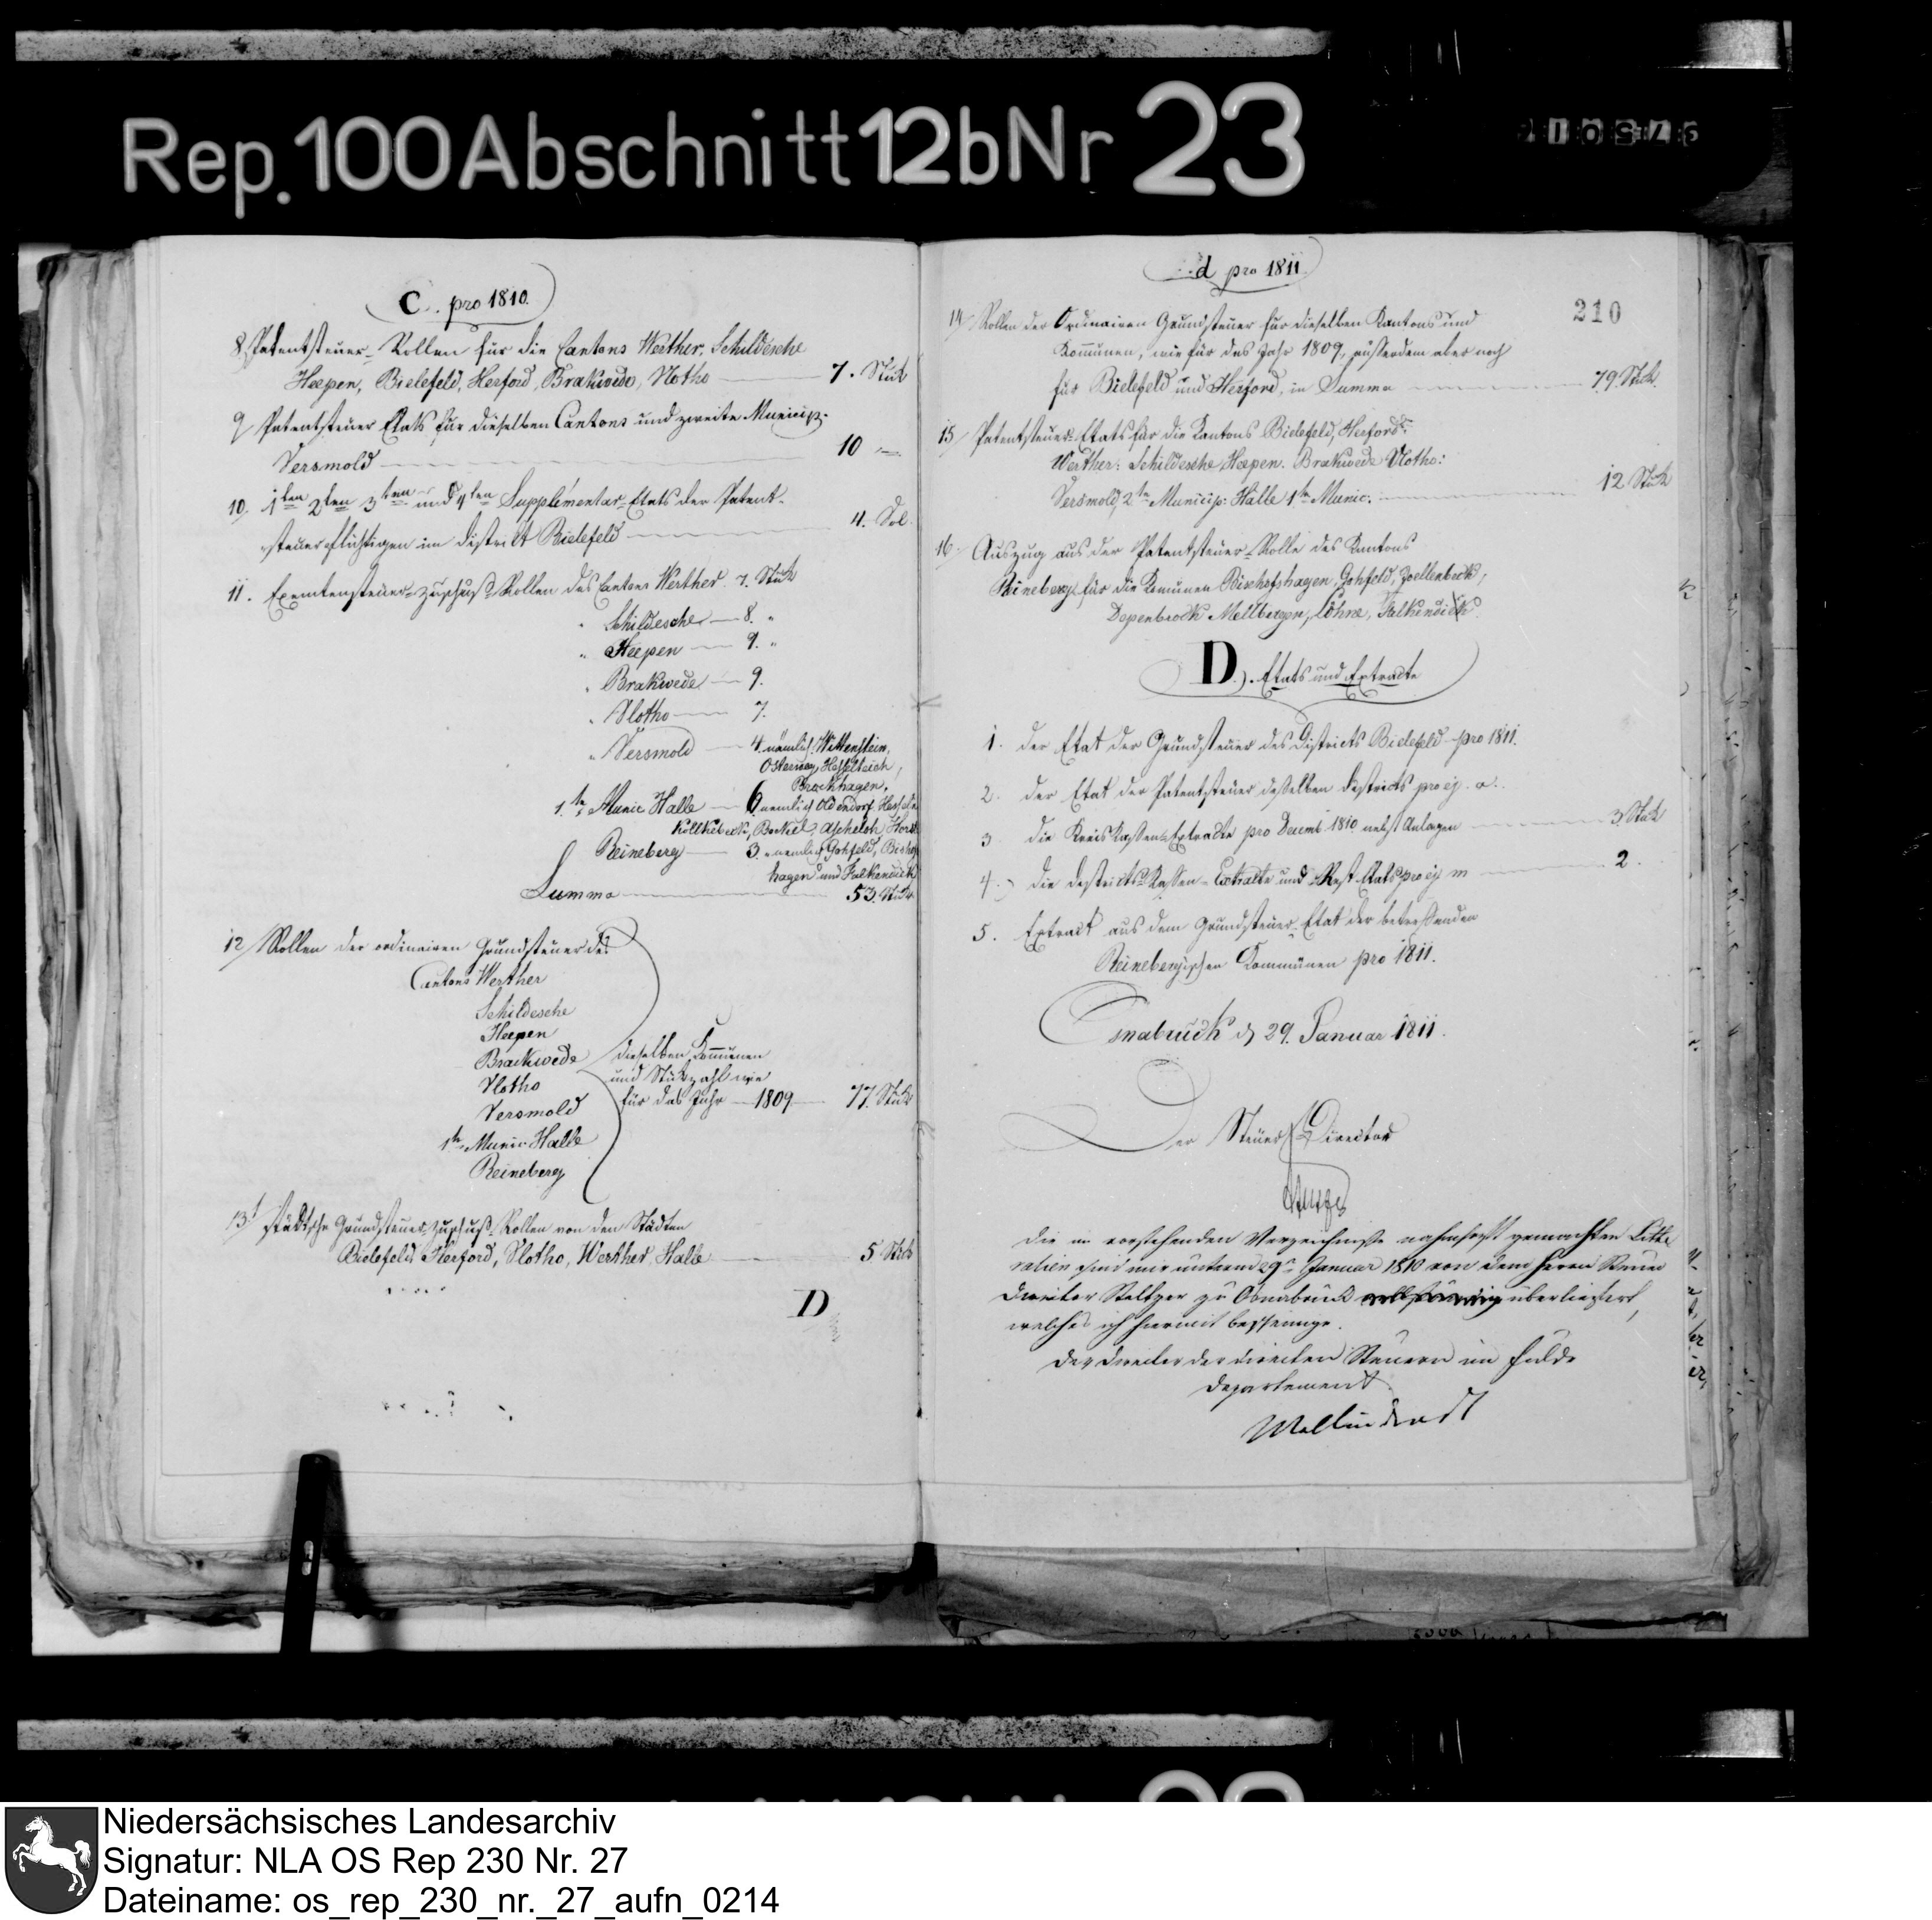 Rep. 100 Abschnitt 12b Nr 23
C. pro 1810.
8. Patentsteuer-Rollen für die Cantons Werther, Schildesche
Heepen, Bielefeld, Herford, Brakwede, Vlotho 7. Stük
9 Patentsteuer Etats für dieselben Cantons und zweite Municip.
Versmold 10
10. 1ten 2ten 3ten und 4ten Supplementar-Etats der Patent-
steuerpflichtigen im District Bielefeld 4.
11. Exemtensteuer-Zuschuß-Rollen des Cantons Werther 7. Stük
" Schildesche 8. "
" Heepen 9. "
" Brakwede 9.
" Vlotho 7.
" Versmold 4. nämlich Wittenstein,
Osterweg, Hesselteich,
Brockhagen,
1te Munic Halle 6 nemlich Oldendorf, Hesseln
Kölkebeck, Bockel, Ascheloh Horst
Reineberg 3. nemlich Gohfeld, Bischofs
hagen und Falkendiek
Summa 53. Stük
12/ Rollen der ordinairen Grundsteuer des
Cantons Werther
Schildesche
Heepen
Brackwede
Vlotho
Versmold
1te Munic Halle
Reineberg
dieselben Kommunen
und Stükzahl wie
für das Jahr 1809 77. Stük
13/ städtsche Grundsteuer-Zuschuß-Rollen von den Städten
Bielefeld Herford, Vlotho, Werther, Halle 5 Stük
D
d pro 1811
210
14/ Rollen der Ordinairen Grundsteuer für dieselben Kantons und
Kommunen, wie für das Jahr 1809, außerdem aber noch
für Bielefeld und Herford, in Summa 79. Stük.
15/ Patentsteuer-Etats für die Kantons Bielefeld, Herford:
Werther: Schildesche Heepen. Brakwede Vlotho:
Versmold, 2te Municip: Halle 1te Munic. 12 Stük
16/ Auszug aus der Patentsteuer-Rolle des Kantons
Reineberg für die Komunen Bischofshagen, Gohfeld, Joellenbeck,
Depenbrock Mellbergen, Löhne, Falkendiek
D. Etats und Extracte
1. der Etat der Grundsteuer des Districts Bielefeld pro 1811.
2. der Etat der Patentsteuer desselben Districts pro ej. a.
3 die Kreis Kassen-Extracte pro Decemb 1810 nebst Anlagen 3. Stük
4. die Districts-Kassen-Extracte und Rest-Etats pro ej m 2.
5. Extract aus dem Grundsteuer-Etat der betreffenden
Reinebergischen Kommünen pro 1811.
Osnabrück d 29. Januar 1811.
Der Steuer Director
Die im vorstehenden Verzeichniße nahmhaft gemachten Litte
ralien sind mir unterm 29n Januar 1810 von dem Herrn Steuer
Director Steltzer zu Osnabrück vollständig überliefert,
welches ich hiermit bescheinige.
Der Director der directen Steuern im Fulda
Departement
Niedersächsisches Landesarchiv
Signatur: NLA OS Rep 230 Nr. 27
Dateiname: os_rep_230_nr._27_aufn_0214